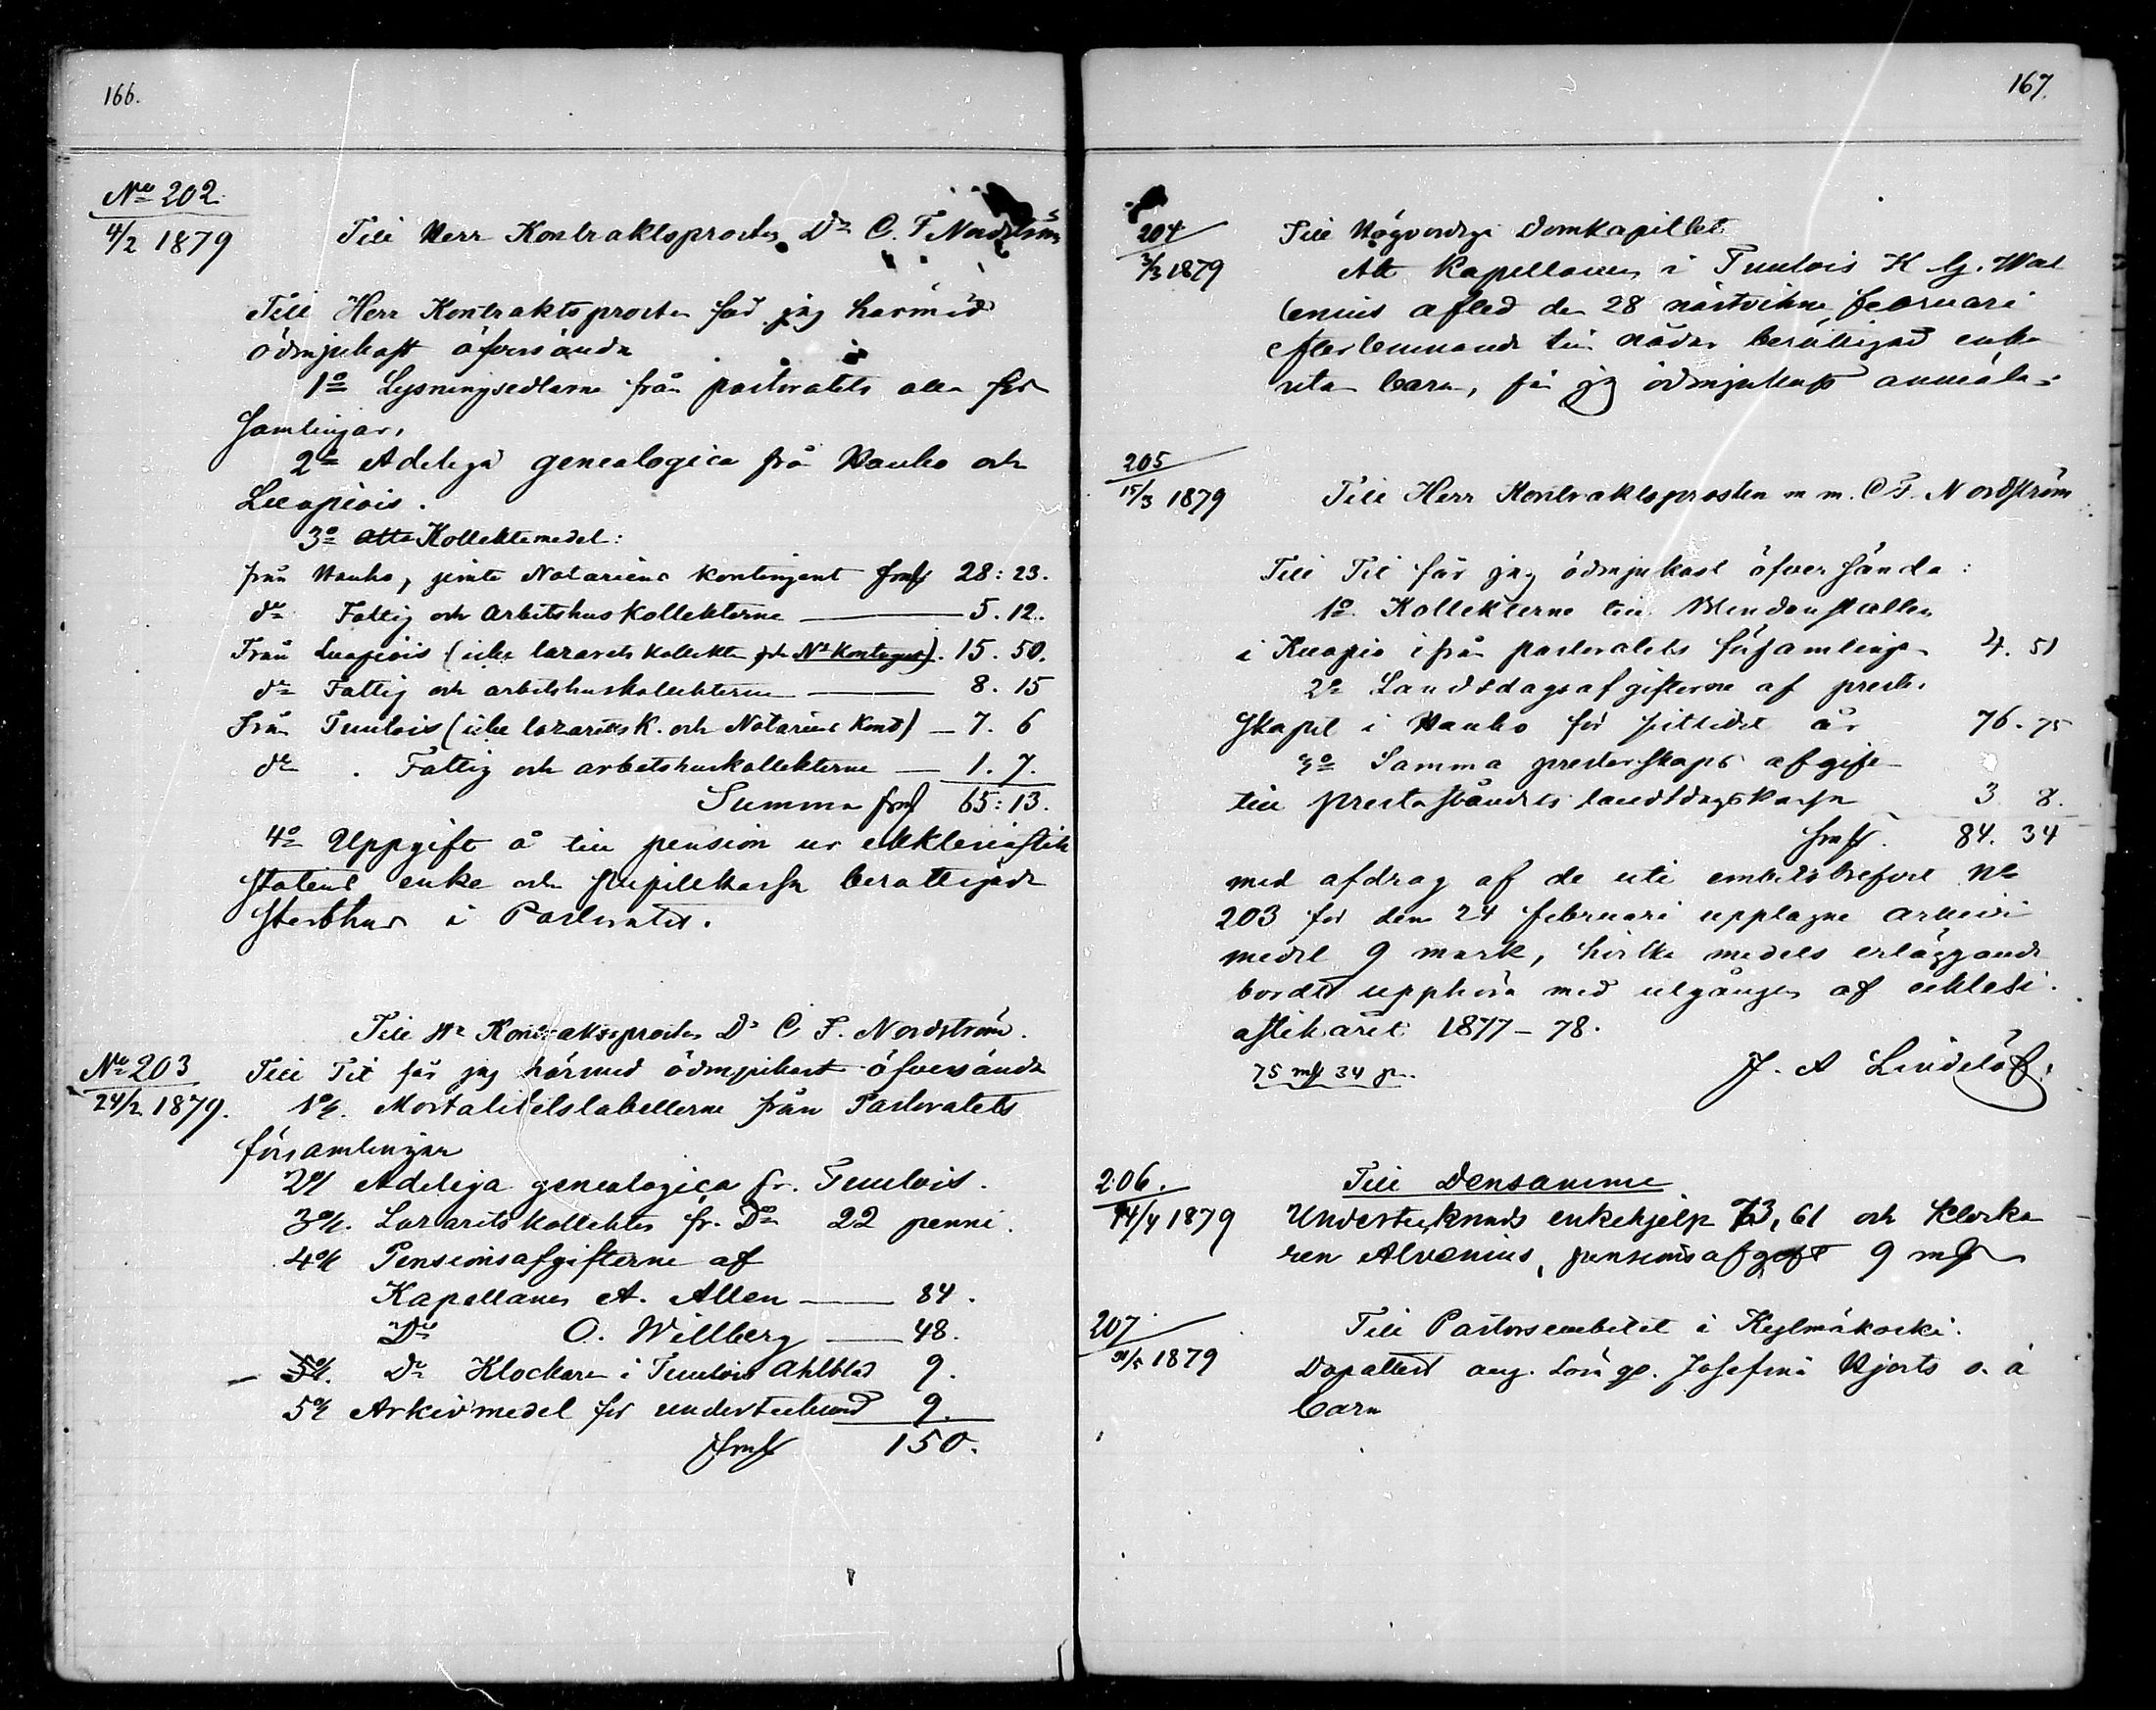 166.
No 202.
4/2 1879
Till Herr Kontraktsprosten Dr C. F. Nordström
Till Herr Kontraktsprosten får jag härmed
ödmjukast öfversända
1o Lysningsedlarne från pastoratets alla för
samlingar.
2o Adeliga genealogica från Hauho och
Luopiois.
3o Kollektmedel:
från Hauho, jemte Notariens kontingent Fmk 28: 23.
do Fattig och arbetshuskollekterne 5. 12.
Från Luopiois (icke lazarets kollekten och Ns Kontingent). 15. 50.
do Fattig och arbetshuskollekterne 8. 15
Från Tuulois (icke lazarets K. och Notariens Kont) 7. 6
do Fattig och arbetshuskollekterne 1. 7.
Summa Fmk 65: 13.
4o Uppgift å till pension ur ecklesiastik
statens enke och pupillkassa berättigade
sterbhus i Pastoratet.
Till Hr Kontraktsprosten Dr C F. Nordström.
No 203
24/2 1879.
Till Tit får jag härmed ödmjukast öfversända
1o/. Mortalitetstabellerne från Pastoratets
församlingar
2o/ Adeliga genealogica fr. Tuulois.
3o/. Lazaretskollekten fr. Do 22 penni.
4o/ Pensionsafgifterne af
Kapellanen A. Allen 84.
Do O. Willberg 48.
5o/. Do Klockaren i Tuulois Ahlblad 9.
5o/ Arkivmedel för undertecknad 9.
Fmk 150.
167.
204
3/3 1879
Till Högvördiga Domkapitlet
Att Kapellanen i Tuulois K G. Wal
lenius afled den 28 nästvikne februari
efterlemnande till nådår berättigad enka
utan barn, får jag ödmjukast anmäla.
205
15/3 1879
Till Herr Kontraktsprosten m m. C F. Nordström
Till Tit får jag ödmjukast öfversända:
1o Kollekterne till Blindanstalten
i Kuopio ifrån pastoratets församlingar 4. 51
2o Landtdagsafgifterne af prester
skapet i Hauho för sittidet år 76. 75
3o Samma presterskaps afgift
till prestaståndets landtdagskassa 3 8.
Fmk. 84. 34
med afdrag af de uti embetsbrefvet No
203 för den 24 februari upptagne arkivi
medel 9 mark, hvilka medels erläggande
bordt upphöra med utgången af ecklesi
astikåret 1877-78.
75 mk 34 p.
J. A Lindelöf.
206.
14/4 1879
Till Densamme
Undertecknads enkehjelp 73, 61 och klocka
ren Alvenius, pensionsafgift 9 mk
207
1879
Till Pastorsembetet i Kylmäkoski.
Dopattest ang. Josefina Hjorts o. ä
barn